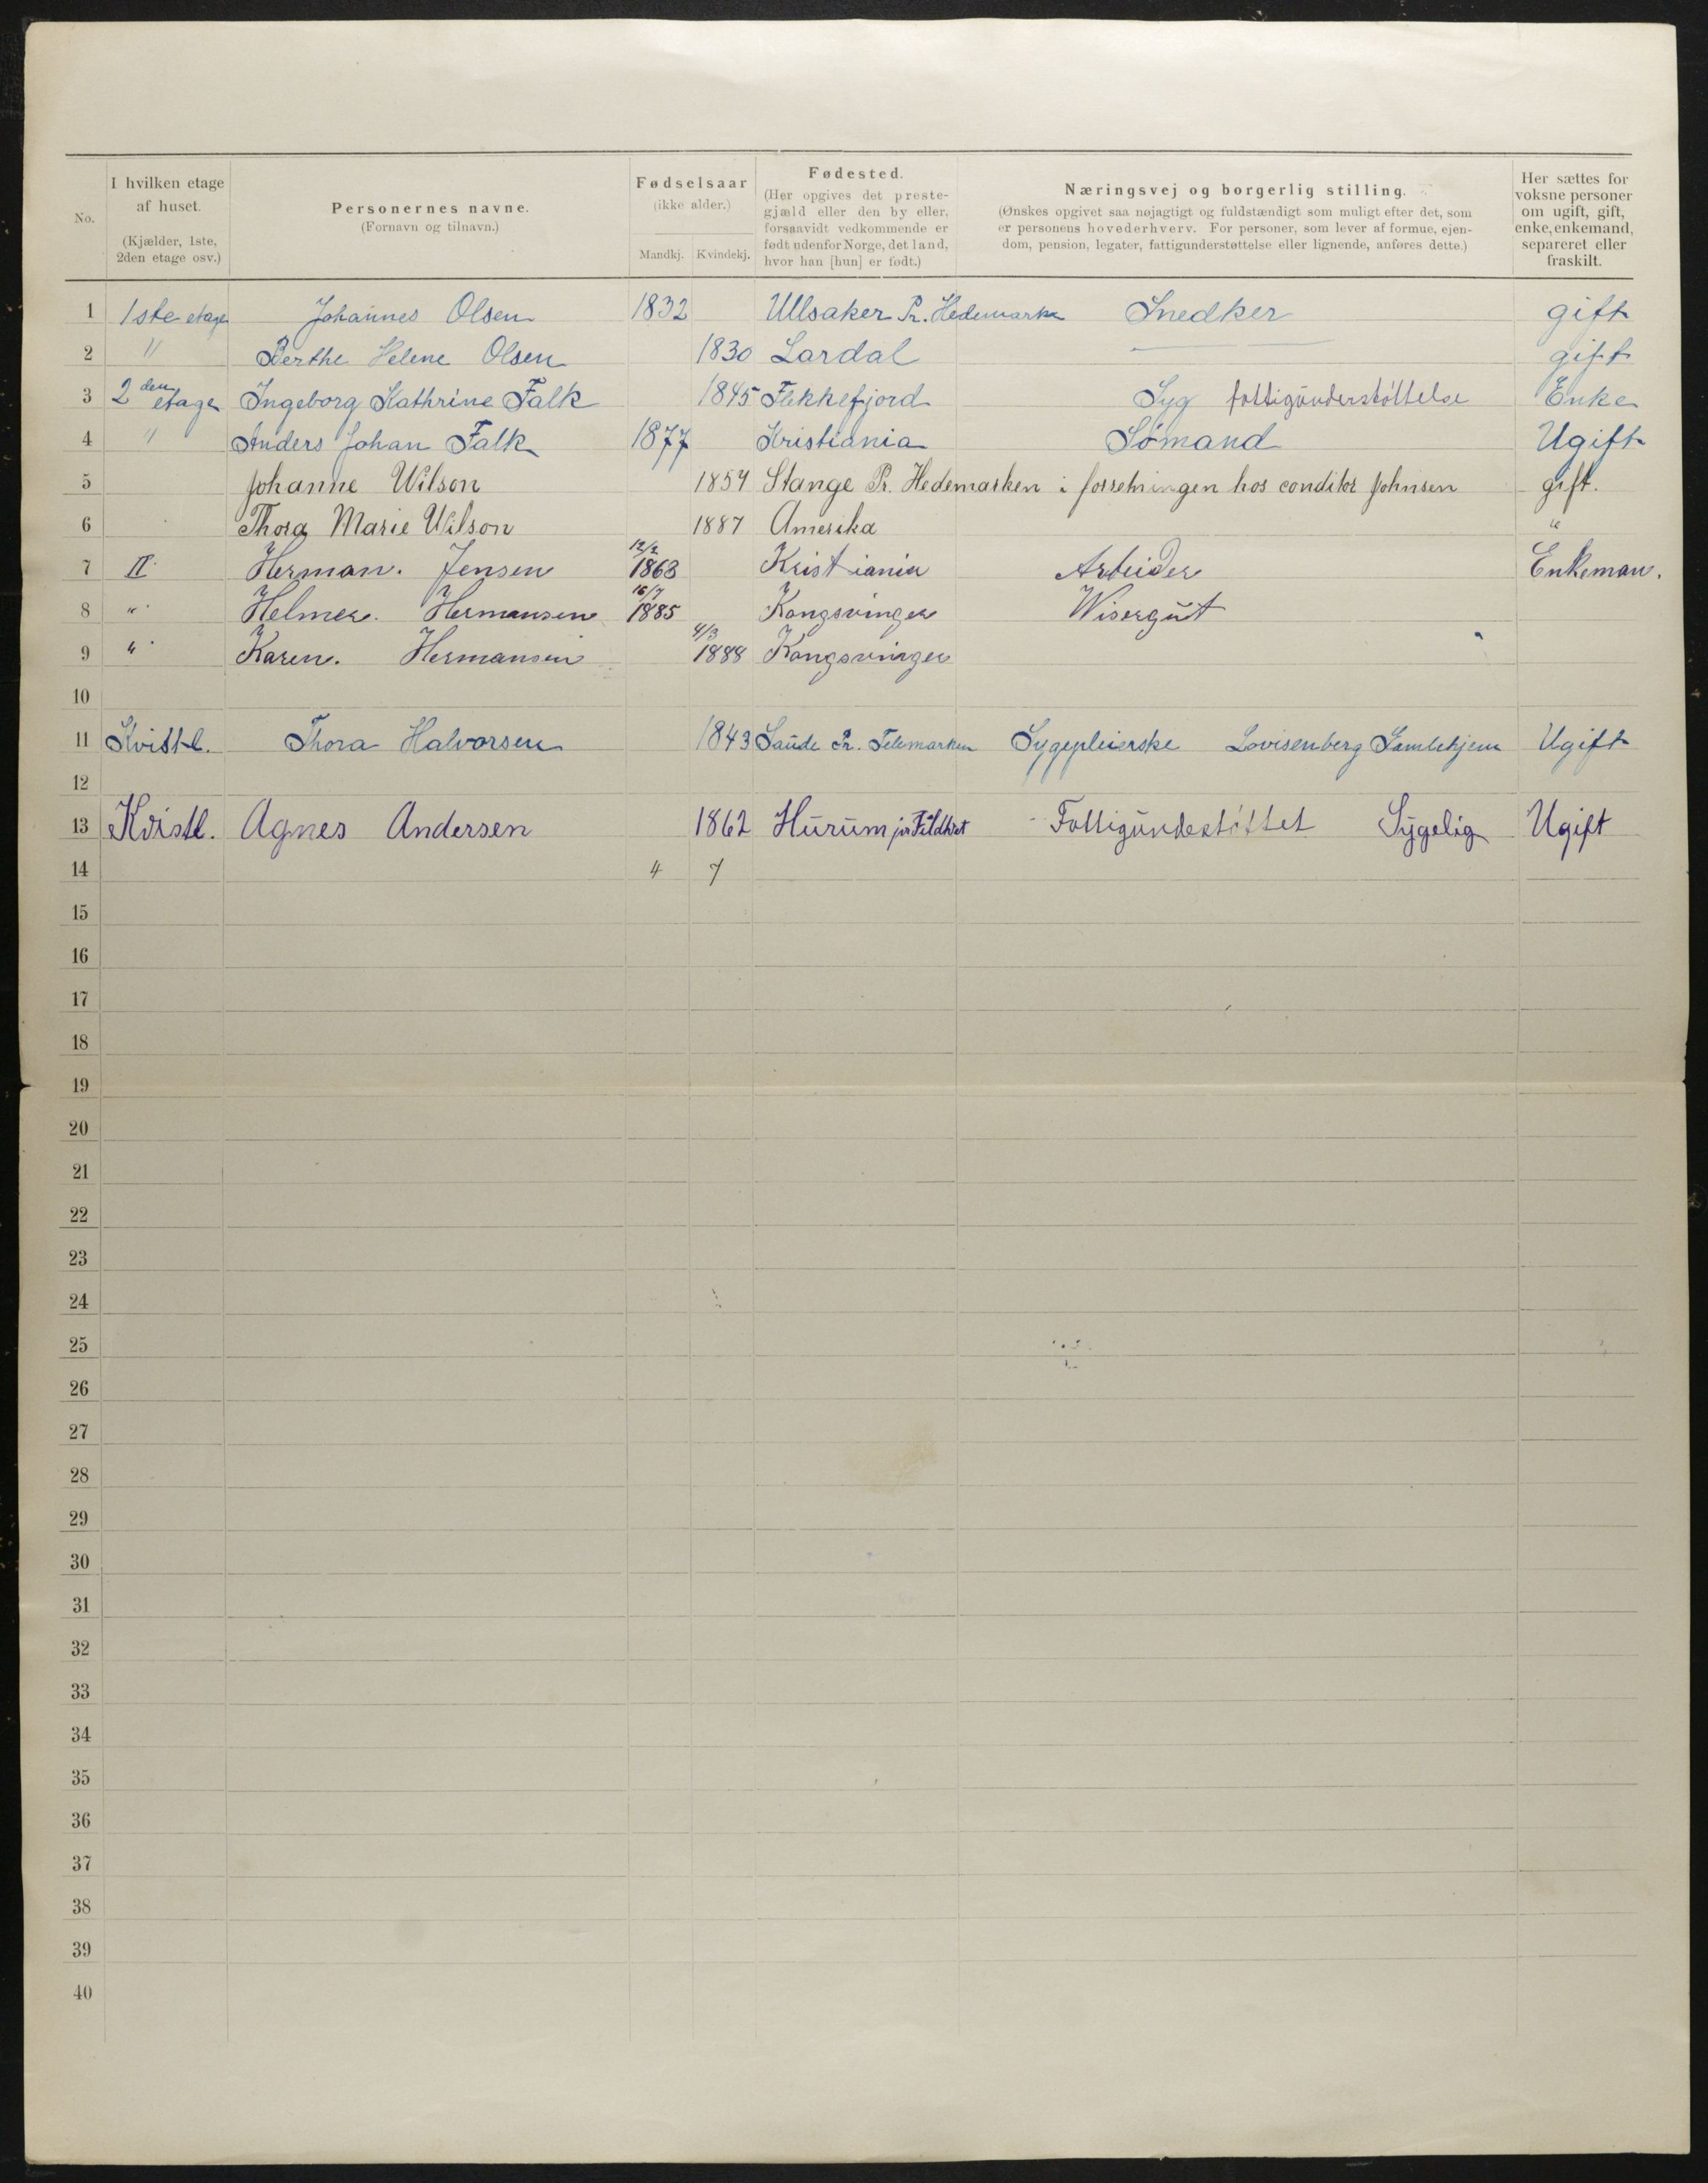 No.
I hvilken etage af huset. (Kjælder, 1ste, 2den etage osv.)
Personernes navne. (Fornavn og tilnavn.)
Fødselsaar (ikke alder.) Mandkj. Kvindekj.
Fødested. (Her opgives det prestegjæld eller den by eller, forsaavidt vedkommende er født udenfor Norge, det land, hvor han [hun] er født.)
Næringsvej og borgerlig stilling. (Ønskes opgivet saa nøjagtigt og fuldstændigt som muligt efter det, som er personens hovederhverv. For personer, som lever af formue, ejendom, pension, legater, fattigunderstøttelse eller lignende, anføres dette.)
Her sættes for voksne personer om ugift, gift, enke, enkemand, separeret eller fraskilt.
1 1ste etage Johannes Olsen 1832 Ullsaker Pr. Hedemarke Snedker gift
2 " Berthe Helene Olsen 1830 Lardal gift
3 2den etage Ingeborg Kathrine Falk 1845 Flekkefjord Syg fattigünderstøttelse Enke
4 " Anders Johan Falk 1877 Kristiania Sømand Ugift
5 Johanne Wilson 1854 Stange Pr. Hedemarken i forretningen hos conditor Johnsen gift.
6 Thora Marie Wilson 1887 Amerika "
7 II. Herman. Jensen 12/2 1863 Kristiania Arbeider Enkeman.
8 " Helmer. Hermansen 16/7 1885 Kongsvinger Wisergüt
9 " Karen. Hermansen 4/3 1888 Kongsvinger
10
11 Kvistl. Thora Halvorsen 1843 Saude Pr. Telemarken Sygepleierske Lovisenberg Samlehjem Ugift
12
13 Kvistl. Agnes Andersen 1862 Hürüm Fattigündestøttet Sÿgelig Ugift
14 4 7
15
16
17
18
19
20
21
22
23
24
25
26
27
28
29
30
31
32
33
34
35
36
37
38
39
40